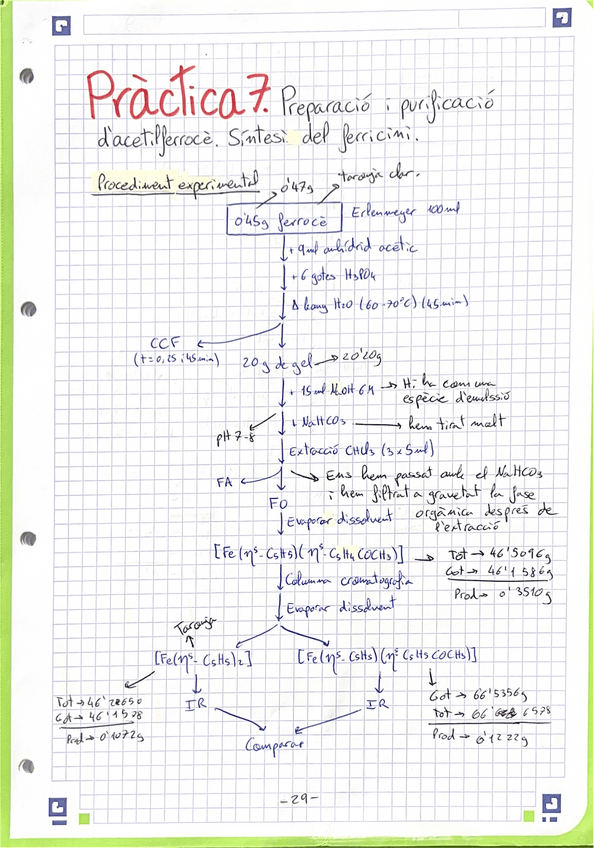 Pràctica 7. Preparació i purificació
d'acetilferrocè. Síntesi del ferricini.
Procediment experimental
0'47g
taronja clar.
0'45g ferrocè
Erlenmeyer 100 ml
+ 9ml anhídrid acètic
+ 6 gotes H3PO4
Δ bany H2O (60-70°C) (45 min)
CCF
(t=0, 25 i 45 min)
20 g de gel → 20'20g
+ 15 ml NaOH 6M → Hi ha com una
espècie d'emulssió
pH 7-8
+ NaHCO3 → hem tirat molt
Extracció CHCl3 (3 x 5 ml)
FA
FO
Ens hem passat amb el NaHCO3
i hem filtrat a gravetat la fase
orgànica després de
l'extracció
Evaporar dissolvent
[Fe(η5-C5H5)(η5-C5H4COCH3)]
Tot → 46'5096g
Got → 46'1586g
Prod → 0'3510g
Columna cromatografia
Evaporar dissolvent
Taronja
[Fe(η5-C5H5)2]
[Fe(η5-C5H5)(η5C5H5COCH3)]
Tot → 46'2650
Got → 46'1578
Prod → 0'1072g
IR
IR
Got → 66'5356g
Tot → 66' 6578
Prod → 0'1222g
Comparar
-29-